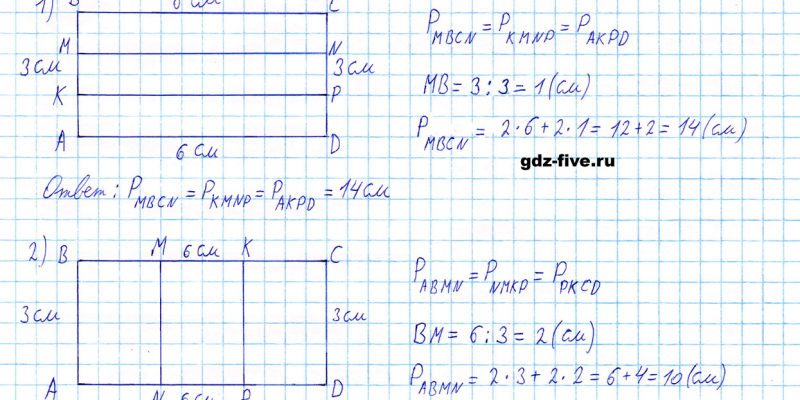 1) B 6 см C
M N
3 см 3 см
K P
A D
6 см
P MBCN = P KMNP = P AKPD
MB = 3 : 3 = 1 (см)
P MBCN = 2 · 6 + 2 · 1 = 12 + 2 = 14 (см)
gdz-five.ru
Ответ: P MBCN = P KMNP = P AKPD = 14 см
2) B M 6 см K C
3 см 3 см
A N 6 см P D
P ABMN = P NMKP = P PKCD
BM = 6 : 3 = 2 (см)
P ABMN = 2 · 3 + 2 · 2 = 6 + 4 = 10 (см)